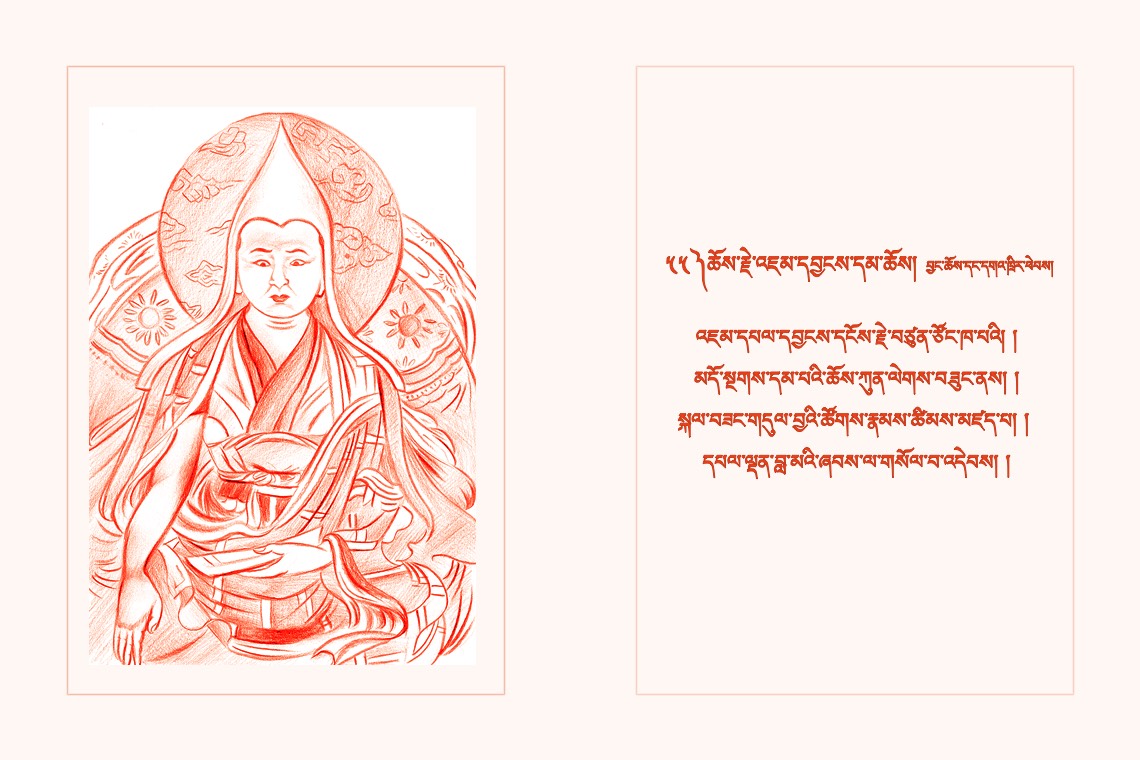 ༥༥ ༽ ཆོས་རྗེ་འཇམ་དབྱངས་དམ་ཆོས། བྱང་ཆོས་དང་དགའ་ཁྲིར་ཕེབས།
འཇམ་དཔལ་དབྱངས་དངོས་རྗེ་བཙུན་ཙོང་ཁ་པའི། །
མདོ་སྔགས་དམ་པའི་ཆོས་ཀུན་ལེགས་བཟུང་ནས། །
སྐལ་བཟང་གདུལ་བྱའི་ཚོགས་རྣམས་ཚིམས་མཛད་པ། །
དཔལ་ལྡན་བླ་མའི་ཞབས་ལ་གསོལ་བ་འདེབས། །